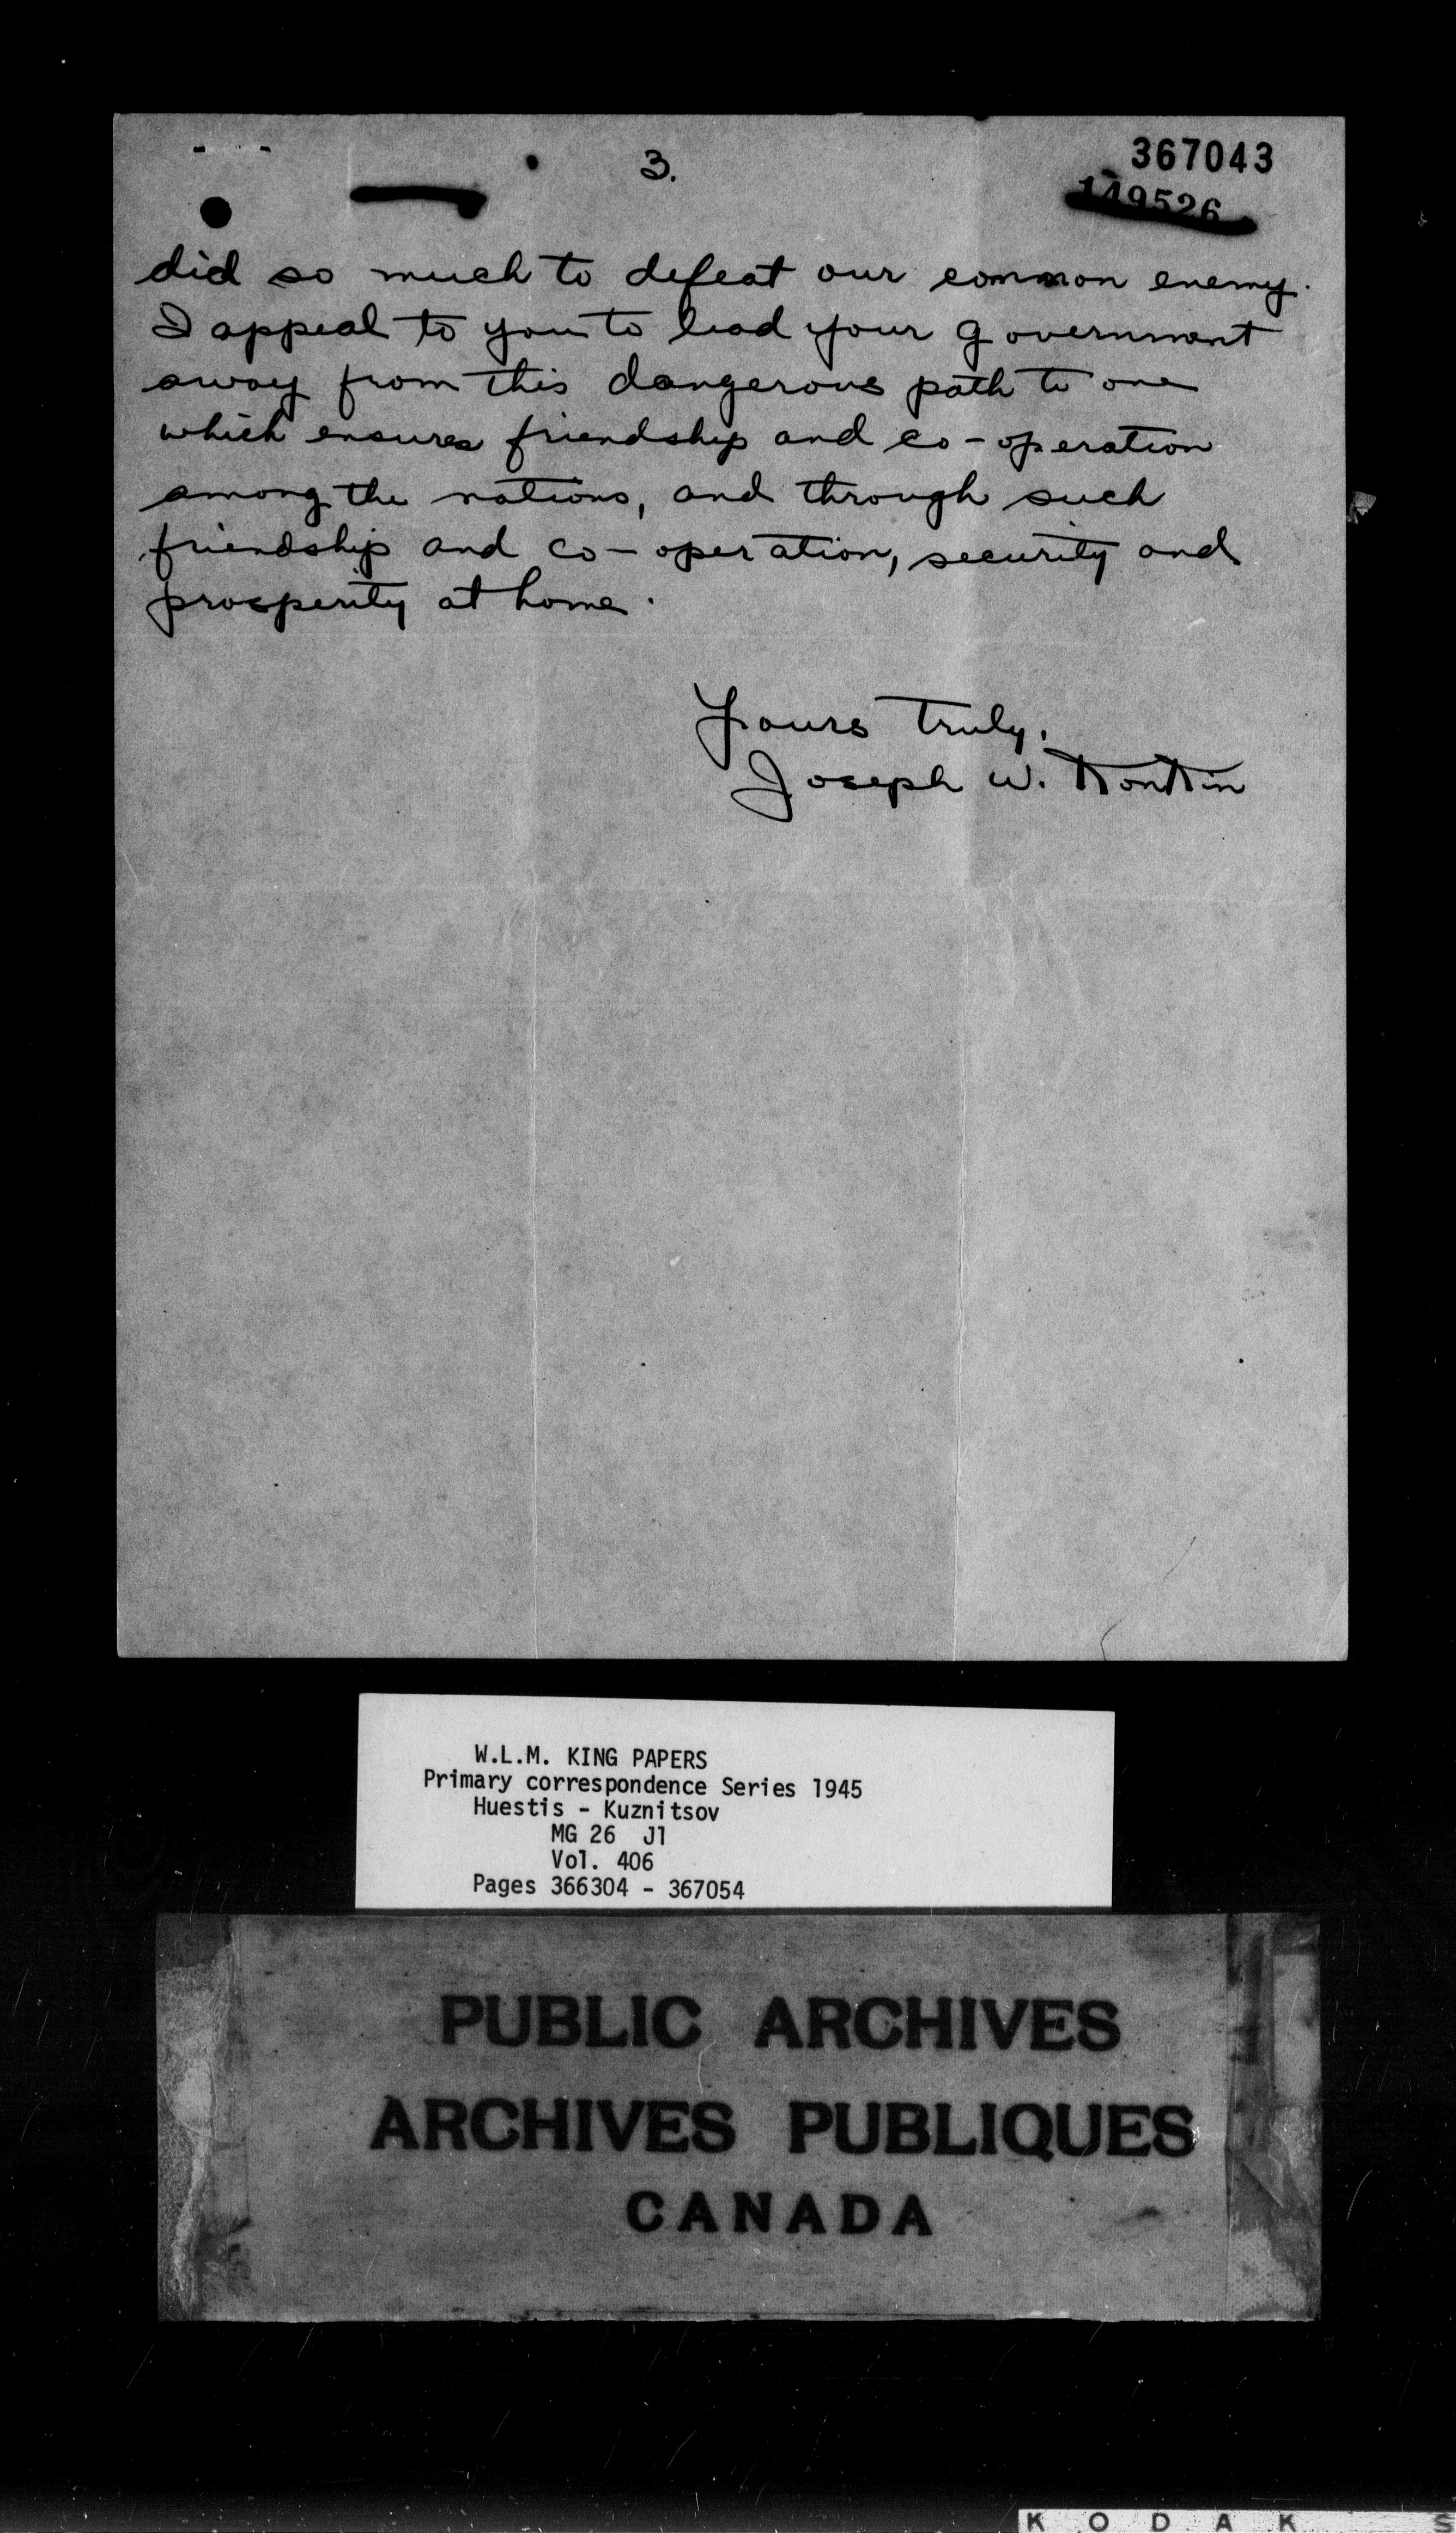 3.
367043
149526
did so much to defeat our common enemy.
I appeal to you to lead your government
away from this dangerous path to one
which ensures friendship and co-operation
among the nations, and through such
friendship and co-operation, security and
prosperity at home.
Yours truly,
Joseph W.
W.L.M. KING PAPERS
Primary correspondence Series 1945
Huestis - Kuznitsov
MG 26 J1
Vol. 406
Pages 366304 - 367054
PUBLIC ARCHIVES
ARCHIVES PUBLIQUES
CANADA
KODAK S